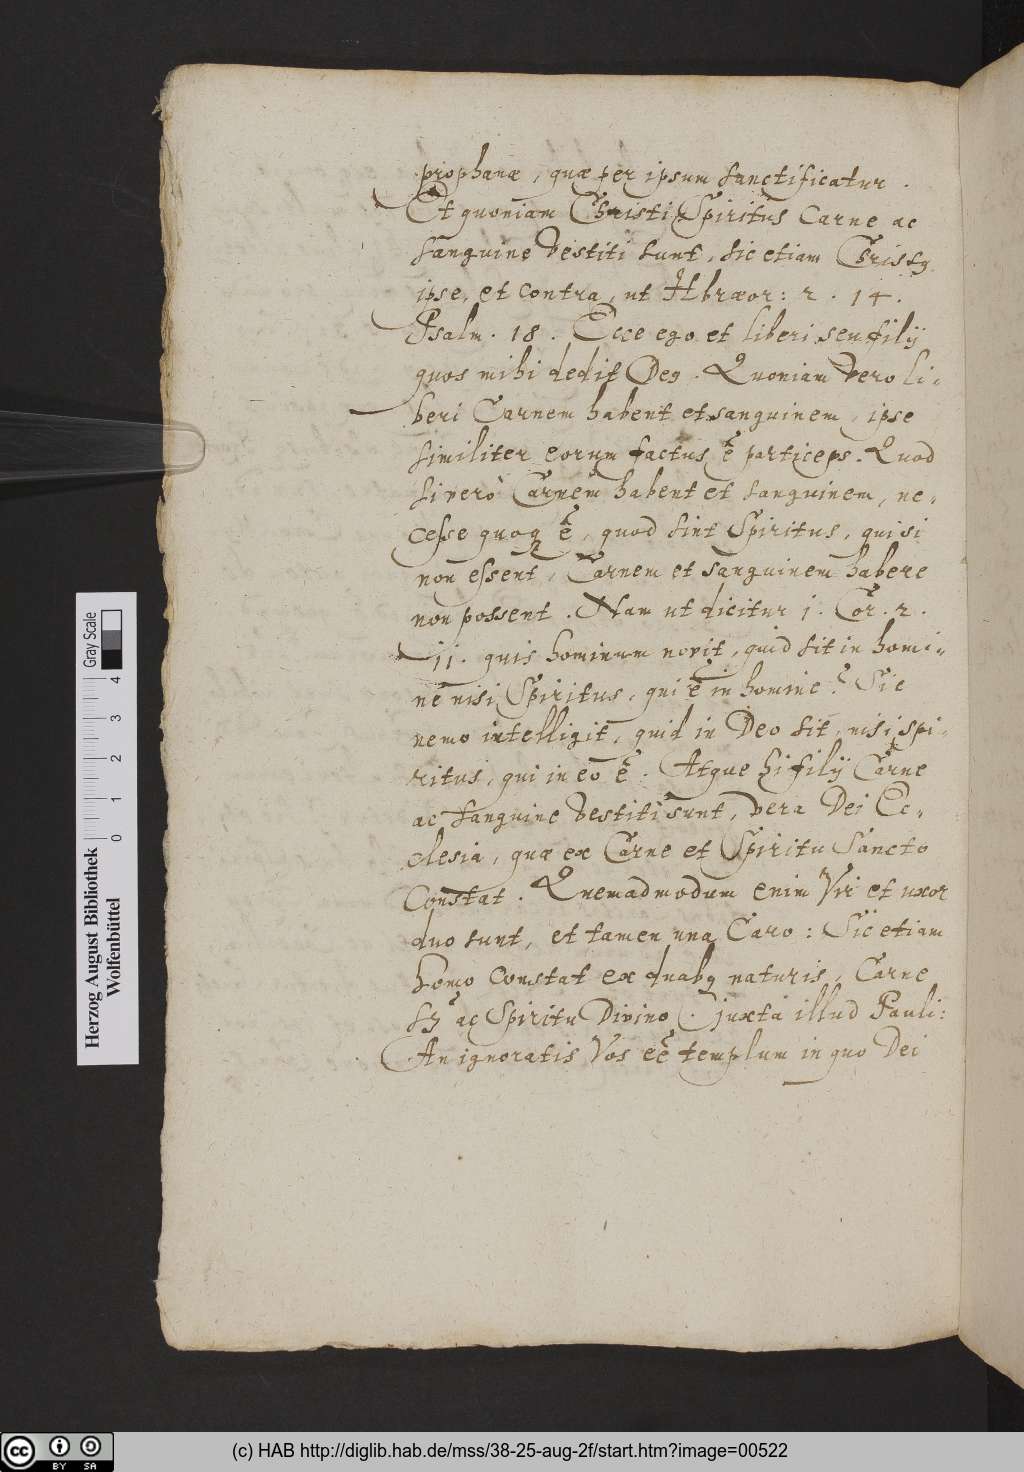 prophanæ, quæ per ipsum sanctificatur.
Et quoniam Christi Spiritus Carne ac
sanguine Vestiti sunt, sic etiam Christꝰ
ipse, et contra, ut Hbræor: 2. 14.
Psalm. 18. Ecce ego et liberi seu filij
quos mihi dedit Deꝰ. Quoniam vero li-
beri Carnem habent et sanguinem, ipse
similiter eorum factus ē particeps. Quod
si verò Carnem habent et sanguinem, ne-
cesse quoqꝫ ē, quod sint Spiritus, qui si
non essent, Carnem et sanguinem habere
non possent. Nam ut dicitur 1. Cor. 2.
11. quis hominum novit, quid sit in homi-
ne nisi Spiritus, qui ē in homine? Sic
nemo intelligit, quid in Deo sit, nisi spi-
ritus, qui in eo ē. Atque hi filij Carne
ac sanguine Vestiti sunt, vera Dei Ec-
clesia, quæ ex Carne et Spiritu Sancto
Constat. Quemadmodum enim Vir et uxor
duo sunt, et tamen una Caro: Sic etiam
homo constat ex duabꝰ naturis, Carne
sꝫ ac Spiritu Divino. juxta illud Pauli:
An ignoratis Vos eē templum in quo Dei
Herzog August Bibliothek
Wolfenbüttel
Gray Scale
0 1 2 3 4
cc BY SA
(c) HAB http://diglib.hab.de/mss/38-25-aug-2f/start.htm?image=00522